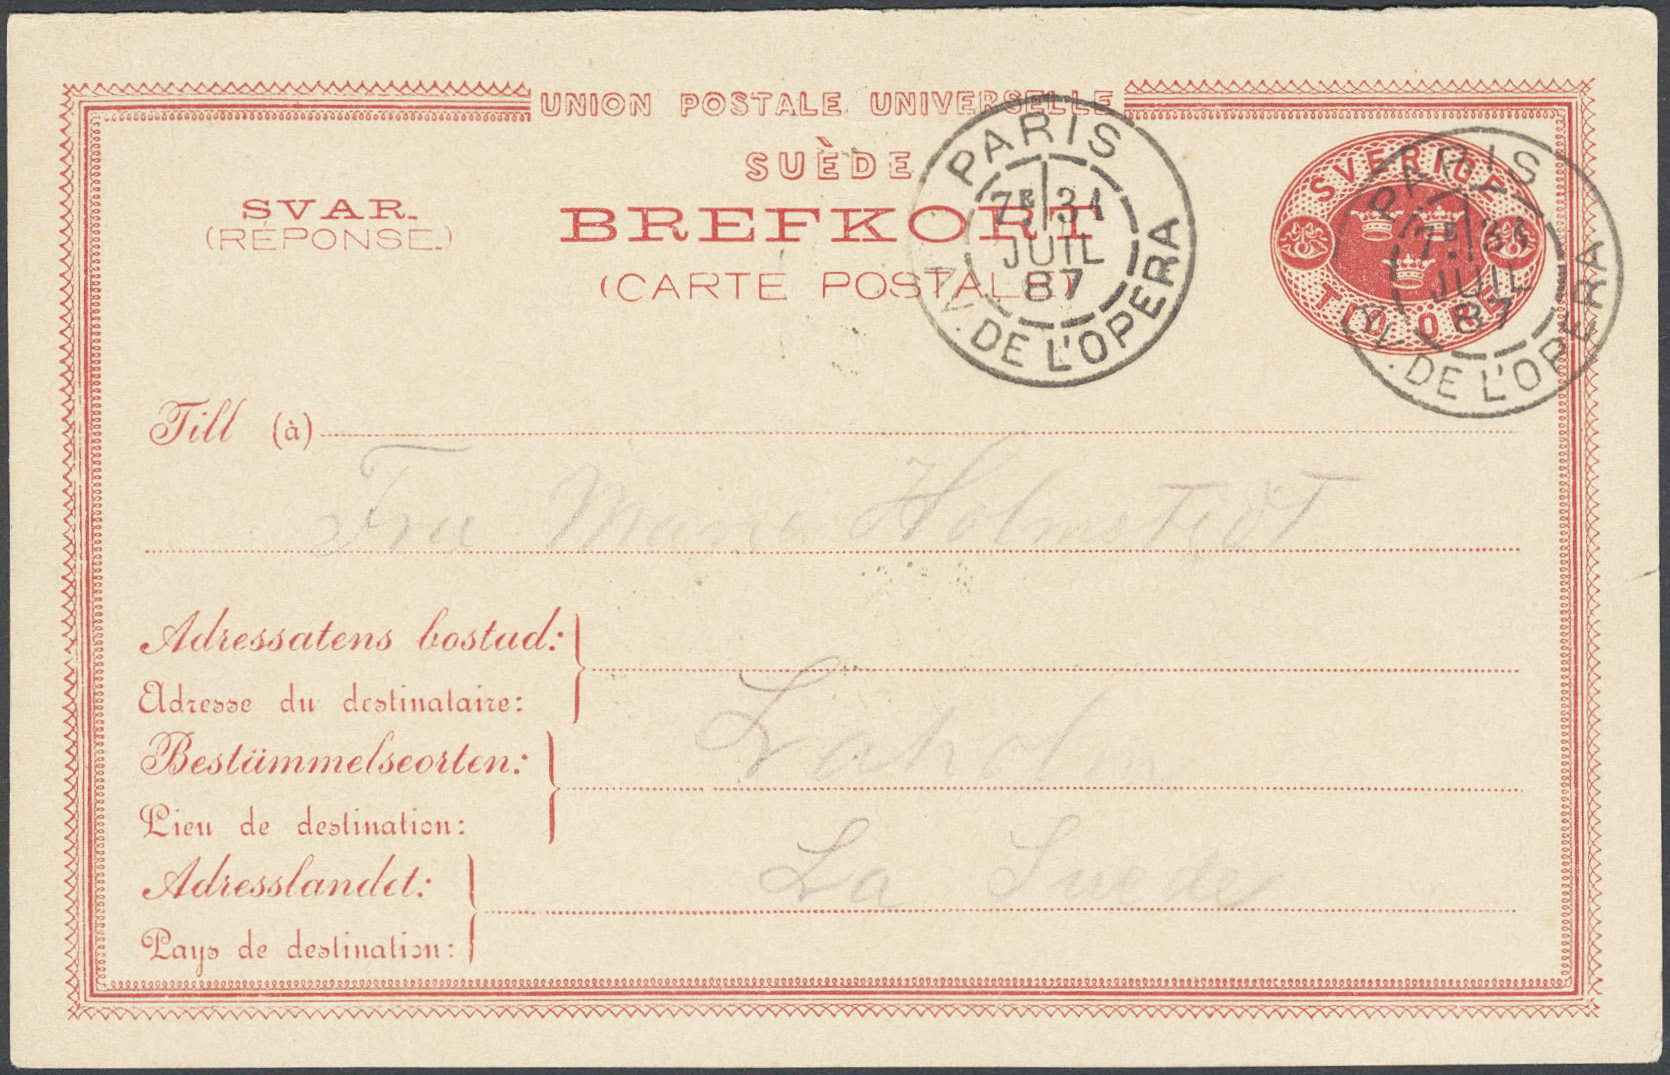 UNION POSTALE UNIVERSELLE
SUÈDE
SVAR.
(RÉPONSE.)
BREFKORT
(CARTE POSTALE)
SVERIGE
TIO ÖRE
PARIS
7E 31
JUIL
87
AV. DE L'OPERA
PARIS
7E 31
JUIL
87
AV. DE L'OPERA
Till (à)
Fru Marie Holmstedt
Adressatens bostad:
Adresse du destinataire:
Bestämmelseorten:
Lieu de destination:
Laholm
Adresslandet:
Pays de destination:
La Suede